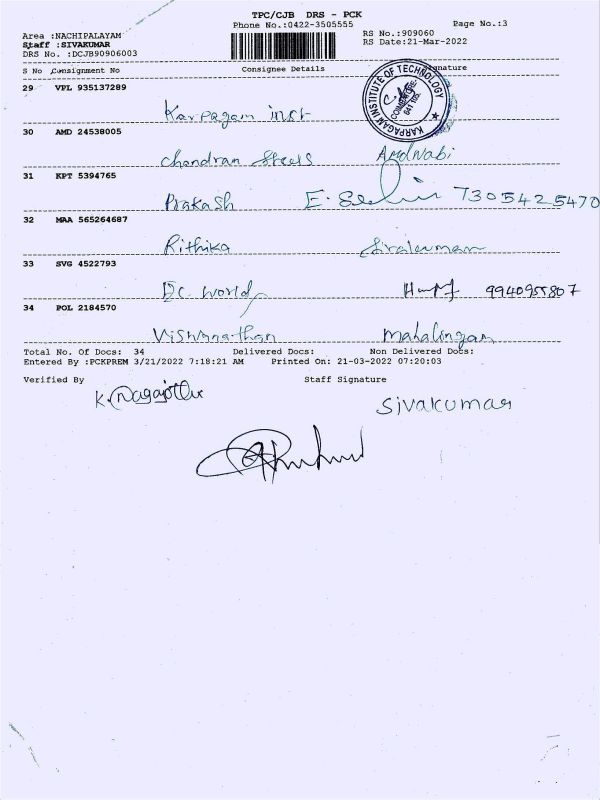 TPC/CJB DRS - PCK
Phone No.:0422-3505555 Page No.:3
Area :NACHIPALAYAM RS No.:909060
Staff :SIVAKUMAR RS Date:21-Mar-2022
DRS No. :DCJB90906003
S No Consignment No Consignee Details Signature
29 VPL 935137289
Karpagam inst
KARPAGAM INSTITUTE OF TECHNOLOGY
COIMBATORE
641 105
30 AMD 24538005
chandran Steels
31 KPT 5394765
Prakash 7305425470
32 MAA 565264687
Rithika
33 SVG 4522793
DC World 9940955807
34 POL 2184570
Viswanathan Mahalingam
Total No. Of Docs: 34 Delivered Docs: Non Delivered Docs:
Entered By :PCKPREM 3/21/2022 7:18:21 AM Printed On: 21-03-2022 07:20:03
Verified By Staff Signature
Sivakumar